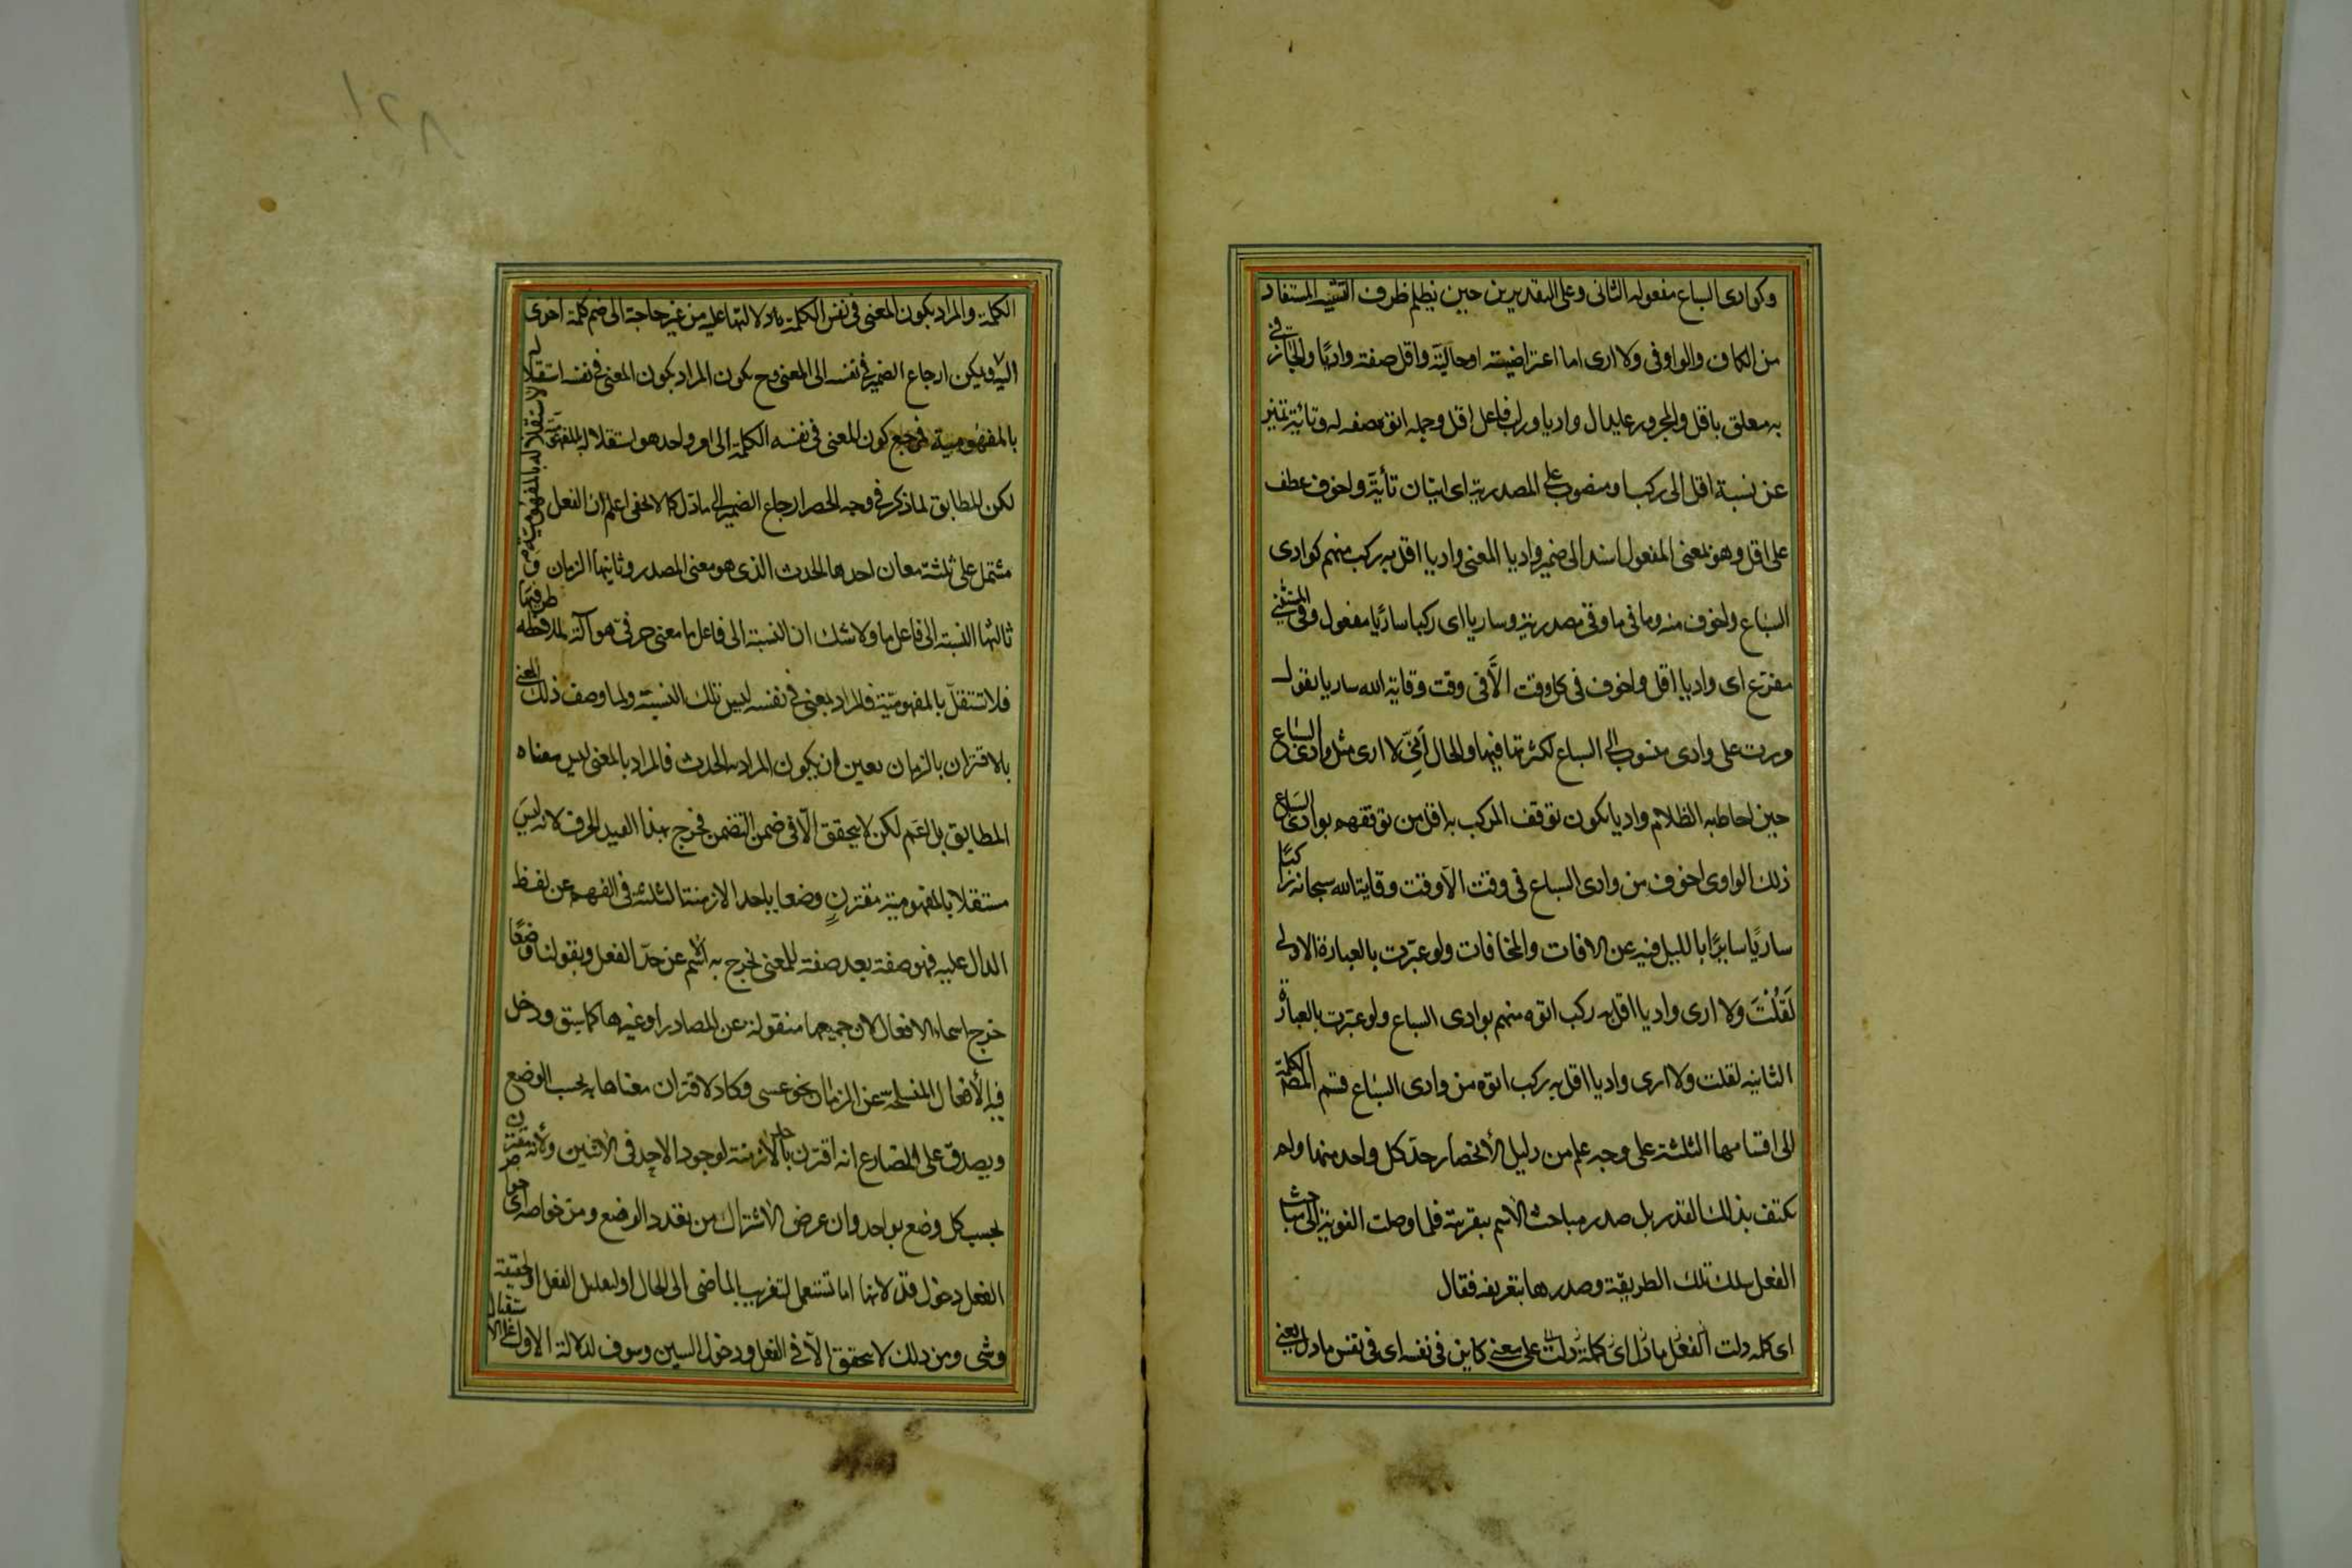 وكوادى السباع مفعوله الثانى وعلى التقديرين حين يظلم ظرف التشبيه المستفاد
من الكاف والواو فى ولا ارى اما اعتراضية او حاليّة واقل صفة واديًا والجار فى
به معلق باقل والمجرور عايد ال واديا وركب فاعل اقل وجملة اتوه صفه له وتائيّة تميز
عن نسبة اقل الى ركب او منصوب على المصدرية اى اتيان تأيّة واخوف عطف
على اقل وهو بمعنى المفعول اسند الى ضمير واديا المعنى واديا اقل به ركب منهم كوادى
السباع واخوف منه وما فى ما وقى مصدرية وساريا اى ركبا ساريًا مفعول وقى والمستثنى
مفرّع اى واديا اقل واخوف فى كل وقت الّا فى وقت وقاية الله ساريا يقول
مررت على وادى منسوب الى السباع لكثرتها فيها والحال أنّى لا ارى مثل وادى السباع
حين احاط به الظلام واديا يكون توقف المركب به اقل من توقفهم بوادى السباع
ذلك الوادى اخوف من وادى السباع فى وقت الا وقت وقاية الله سبحانه ركبًا
ساريًا سايرًا بالليل فيه عن الافات والمخافات ولو عبّرت بالعبارة الاولى
لَقُلْتَ ولا ارى واديا اقل به ركب اتوه منهم بوادى السباع ولو عبّرت بالعبارة
الثانيه لقلت ولا ارى واديا اقل به ركب اتوه من وادى السباع قسم المص الكلمة
الى اقسامها الثلثة على وجه علم من دليل الأنحصار حدّ كل واحد منها ولم
يكتف بذلك القدر بل صدر مباحث الاسم بتعريفه فلما وصلت النوبة الى مباحث
الفعل سلك تلك الطريقة وصدرها بتعريفه فقال
اى كلمه دلت الفعل ما دل اى كلمة دلت على معنى كاين فى نفسه اى فى نفس ما دل يعنى
الكلمة والمراد بكون المعنى فى نفس الكلمة دلالتها عليه من غير حاجة الى ضم كلمة اخرى
اليها ويمكن ارجاع الضمير فى نفسه الى المعنى وح يكون المراد بكون المعنى فى نفسه استقلاله
بالمفهومية فمرجع كون المعنى فى نفسه الكلمة الى امر واحد هو استقلاله بالمفهومية
لكن المطابق لما ذكر فى وجه الحصر ارجاع الضمير الى ما دل كما لا يخفى اعلم ان الفعل
مشتمل على ثلثة معان احدها الحدث الذى هو معنى المصدر وثانيها الزمان و
ثالثها النسبة الى فاعل ما ولا شك ان النسبة الى فاعل ما معنى حرفىّ هو آلة لملاحظة طرفيها
فلا تستقلّ بالمفهوميّة فالمراد بمعنى فى نفسه ليس تلك النسبة ولما وصف ذلك المعنى
بالاقتران بالزمان تعين ان يكون المراد به الحدث فالمراد بالمعنى ليس معناه
المطابق بل اعم لكن لا يتحقق الّا فى ضمن التضمن فخرج بهذا القيد الحرف لانه ليس
مستقلا بالمفهومية مقترنٍ وضعا باحد الازمنة الثلثة فى الفهم عن لفظ
الدال عليه فهو صفة بعد صفة للمعنى يخرج به الاسم عن حدّ الفعل وبقولنا وضعًا
خرج اسماء الافعال لان جميعها منقولة عن المصادر او غيرها كما سبق ودخل
فيه الأفعال المنسلخة عن الزمان نحو عسى وكاد لاقتران معناها به بحسب الوضع
ويصدق على المضارع انه اقترن باحد الازمنة لوجود الاحد فى الاثنين ولأنه مقترن
بحسب كل وضع بواحد وان عرض الاشتراك من تعدد الوضع ومن خواصه اى خواص
الفعل دخول قد لانها اما تستعمل لتقريب الماضى الى الحال او لتقليل الفعل او لتحقيقه
وشى من ذلك لا يتحقق الّا فى الفعل ودخول السين وسوف لدلالة الاول على الاستقبال